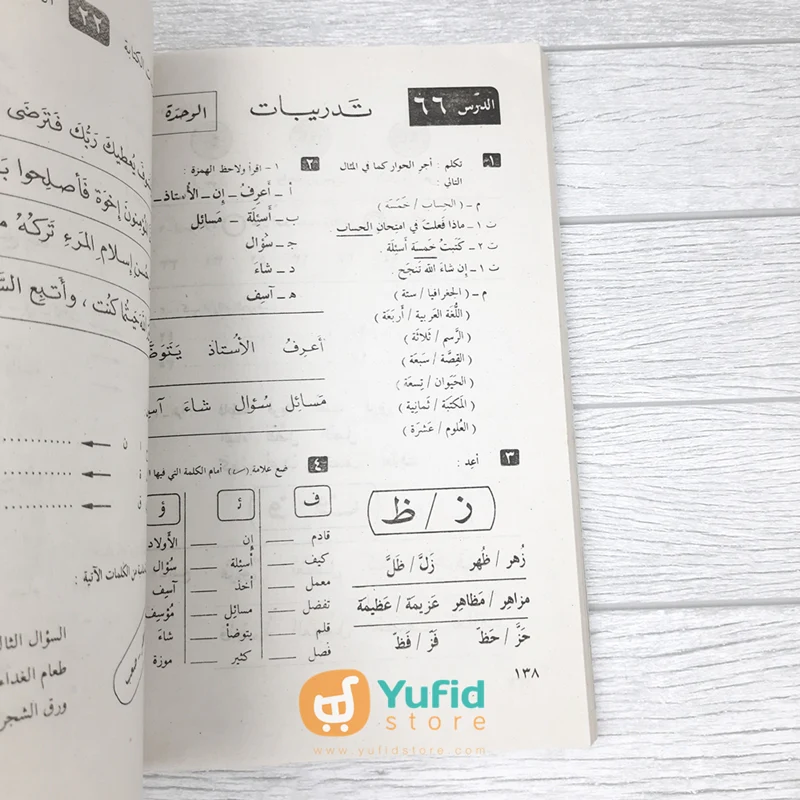 الدرس ٦٦
تدريبات
الوحدة
١
تكلم : أجر الحوار كما في المثال
التالي :
م - ( الحساب / خمسة )
ت ١ - ماذا فعلت في امتحان الحساب
ت ٢ - كتبتُ خمسة أسئلة .
ت ١ - إن شاء الله تنجح .
م - ( الجغرافيا / ستة )
( اللُّغة العربية / أربعة )
( الرسم / ثلاثة )
( القِصَّة / سبعة )
( الحَيَوان / تِسعة )
( المكتبة / ثمانية )
( العُلوم / عَشرة )
٢
١ - اقرأ ولاحظ الهمزة :
أ - أَعرِفُ - إن - الأُستاذ
ب - أَسئِلَة - مَسائِل
جـ - سُؤال
د - شاءَ
هـ - آسِف
أعرِفُ الأُستاذ
مَسائِل سُؤال شاءَ
٣
أعِد :
ز / ظ
زُهر / ظُهر زَلَّ / ظَلَّ
مزاهِر / مَظاهِر عَزيمة / عظيمة
حَزَّ / حَظّ فَزّ / فَظّ
٤
ضع علامة (✓) أمام الكلمة التي فيها
ف ئـ ؤ
قادم إن الأولاد
كيف أسئِلة سُؤال
معمل أخذ آسِف
تفضل مسائِل مُؤسِف
قلم يتوضأ شاءَ
فصل كثير موزة
١٣٨
٢٢
يُعطيكَ رَبُّكَ فَتَرضَى
إخوَة فَأصلِحوا
إسلامِ المَرءِ تَركُهُ
كنت ، وأتبِع
من الكلمات الآتية :
السؤال
طعام الغداء
ورق الشجر
Yufid
store
www.yufidstore.com